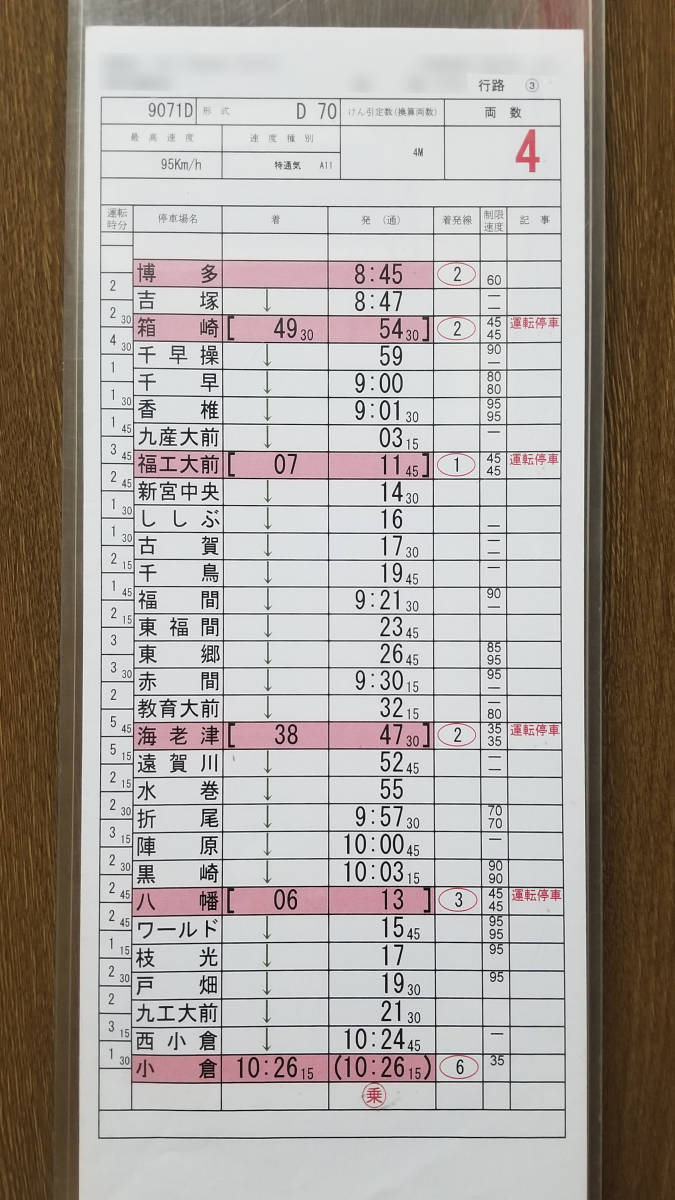 行路 ③
9071D 形式 D 70 けん引定数(換算両数) 両数
最高速度 速度種別 4M 4
95Km/h 特通気 A11
運転時分 停車場名 着 発 (通) 着発線 制限速度 記事
博多 8:45 2 60
2
吉塚 ↓ 8:47 ―
2 30
箱崎 [ 49 30 54 30 ] 2 45 45 運転停車
4 30
千早操 ↓ 59 90 ―
1
千早 ↓ 9:00 80 80
1 30
香椎 ↓ 9:01 30 95 95
1 45
九産大前 ↓ 03 15 ―
3 45
福工大前 [ 07 11 45 ] 1 45 45 運転停車
2 45
新宮中央 ↓ 14 30
1 30
ししぶ ↓ 16 ―
1 30
古賀 ↓ 17 30 ― ―
2 15
千鳥 ↓ 19 45 ―
1 45
福間 ↓ 9:21 30 90 ―
2 15
東福間 ↓ 23 45
3
東郷 ↓ 26 45 85 95
3 30
赤間 ↓ 9:30 15 95 ―
2
教育大前 ↓ 32 15 ― 80
5 45
海老津 [ 38 47 30 ] 2 35 35 運転停車
5 15
遠賀川 ↓ 52 45 ― ―
2 15
水巻 ↓ 55
2 30
折尾 ↓ 9:57 30 70 70
3 15
陣原 ↓ 10:00 45 ―
2 30
黒崎 ↓ 10:03 15 90 90
2 45
八幡 [ 06 13 ] 3 45 45 運転停車
2 45
ワールド ↓ 15 45 95 95
1 15
枝光 ↓ 17 95
2 30
戸畑 ↓ 19 30 95
2
九工大前 ↓ 21 30
3 15
西小倉 ↓ 10:24 45 ―
1 30
小倉 10:26 15 (10:26 15) 6 35
乗